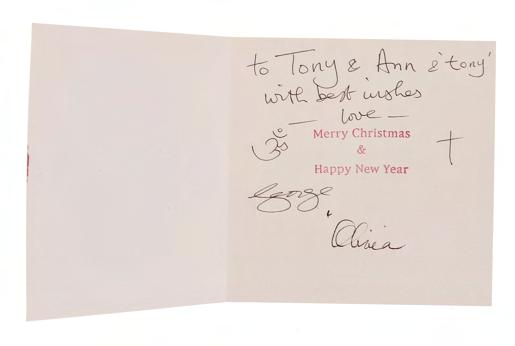 to Tony & Ann & 'tony'
with best wishes
— love —
ॐ
Merry Christmas
&
Happy New Year
†
George
Olivia